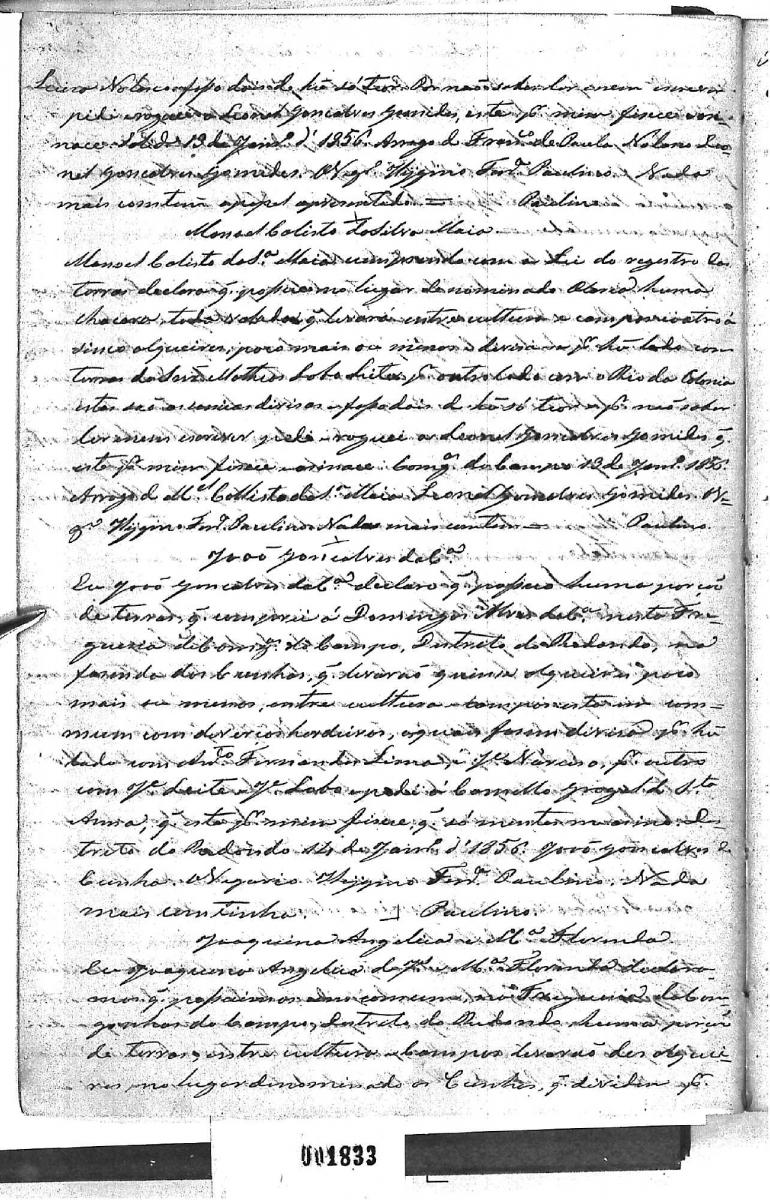 e faço dois de hû só teor. Por não saber ler e nem escrever
pedi e roguei a Leonel Gonçalves Gomides, este p.r mim fizece e asi-
nace. 13 de Janr.º d'1856. Arrogo de Fran.co de Paula Nolasco Leo-
nel Gonçalves Gomides. O Vig.rº Hyggino Frd.º Paulino. Nada
mais continha o papel apresentado = Paulino
Manoel Calisto da Silva Maia
Manoel Calisto da S.ª Maia cumprindo com a Lei do registro das
terras declaro q. possuo no lugar denominado Olaria huma
chacara, toda vedada q. levará entre cultura e campos coatro á
sinco alqueires, poco mais ou menos e devisa p.r hû lado com
terras de José Matheus Lobo Leite, p.r outro lado com o Rio da Colonia
estas são as unicas divisas e faço dois de hû só teor e p.r não saber
ler e nem escrever pedi e roguei a Leonel Gonçalves Gomides q.
este p.r mim fizece e asinace. Cong.as do Campo 13 de Janr.º 1856.
Arrogo de M.el Callisto da S.ª Maia Leonel Gonçalves Gomides. O Vi-
g.rº Hyggino Frd.º Paulino. Nada mais continha = Paulino.
João Gonçalves da C.ª
Eu João Gonçalves da C.ª declaro q. possuo huma porção
de terras, q. comprei á Domingos Alves da C.ª nesta Fre-
guezia de Cong.as do Campo, Destreto do Redondo, na
fazenda dos Cunhas, q. levarão quinze alqueires poco
mais ou menos, entre cultura e campos e estão em com-
mum com deverços herdeiros, o quais fazem diviza p.r hû
lado com Ant.º Fernandes Lima, e J.e Narcizo, p.r outro
com J.e Leite e J.e Lobo e pedi á Camillo de St.ª
Anna, q. este p.r mim fizece q. só mente me asino. Des-
treto do Redondo 14 de Janr.º d'1856. João Gonçalves da
Cunha. O Vigario Hyggino Frd.º Paulino. Nada
mais continha. = Paulino.
Joaquina Angelica e M.ª Florinda
Eu Joaquina Angelica de J.s e M.ª Florinda declara-
mos q. possuimos em comum, na Freguezia de Con-
gonhas do Campo, Destreto do Redondo huma porção
de terras, entre cultura e campos levarão des alquei-
res, no lugar dinominado os Cunhas, q. dividem p.r
001833